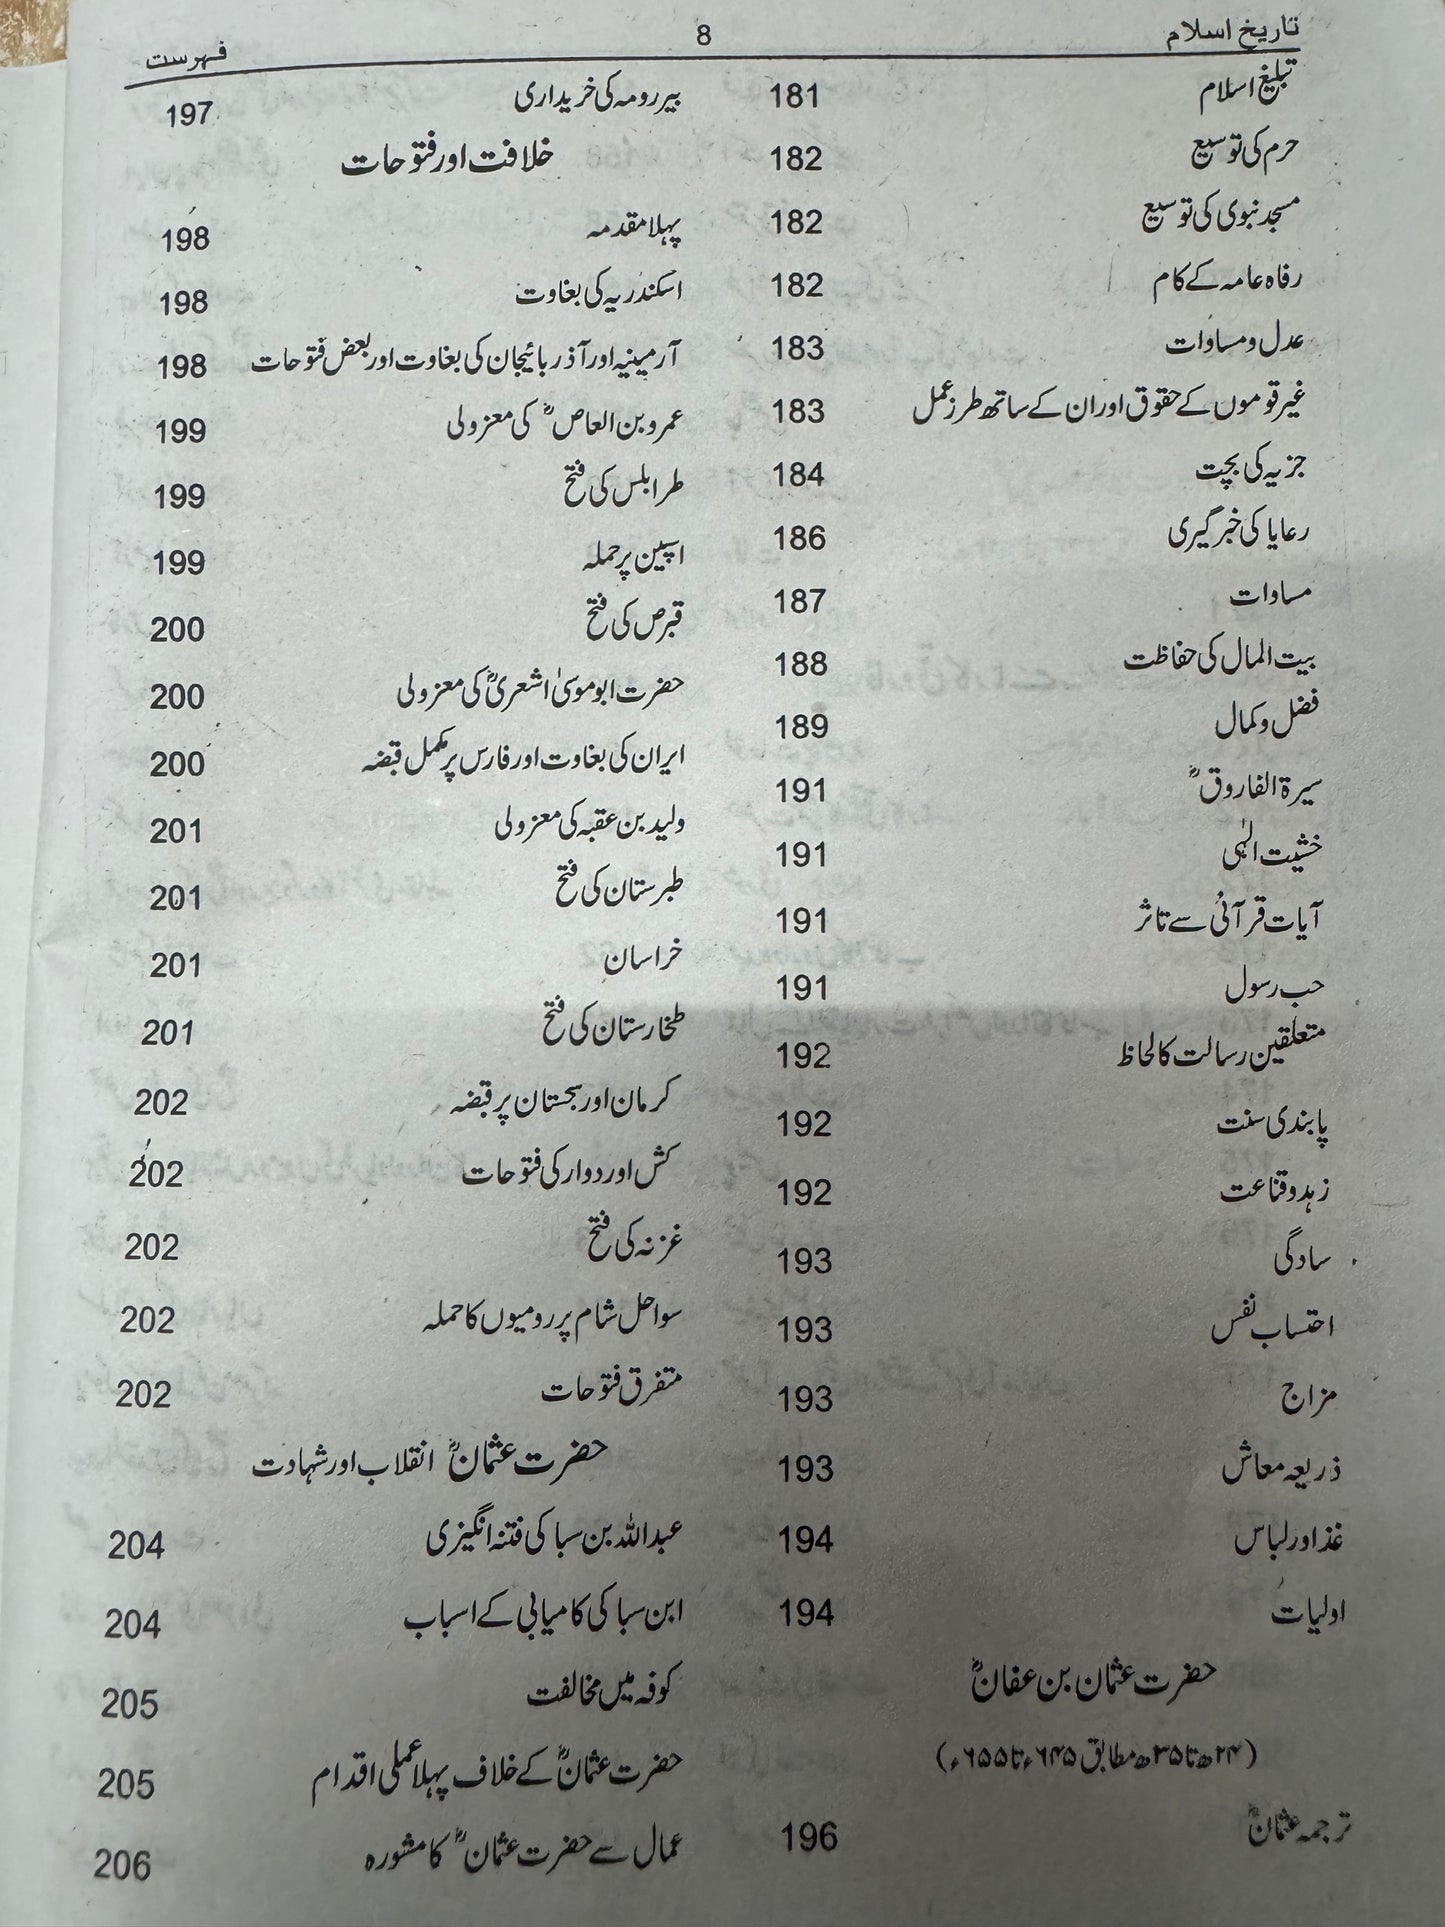 تاریخ اسلام 8 فہرست
تبلیغ اسلام 181
حرم کی توسیع 182
مسجد نبوی کی توسیع 182
رفاہ عامہ کے کام 182
عدل و مساوات 183
غیر قوموں کے حقوق اور ان کے ساتھ طرز عمل 183
جزیہ کی بچت 184
رعایا کی خبر گیری 186
مساوات 187
بیت المال کی حفاظت 188
فضل و کمال 189
سیرۃ الفاروقؓ 191
خشیت الٰہی 191
آیات قرآنی سے تاثر 191
حب رسول 191
متعلقین رسالت کا لحاظ 192
پابندی سنت 192
زہد و قناعت 192
سادگی 193
احتساب نفس 193
مزاج 193
ذریعہ معاش 193
غذا اور لباس 194
اولیات 194
حضرت عثمان بن عفانؓ
(۲۴ھ تا ۳۵ھ مطابق ۶۴۵ء تا ۶۵۵ء)
ترجمہ عثمانؓ 196
بیر رومہ کی خریداری 197
خلافت اور فتوحات
پہلا مقدمہ 198
اسکندریہ کی بغاوت 198
آرمینیہ اور آذر بائیجان کی بغاوت اور بعض فتوحات 198
عمرو بن العاصؓ کی معزولی 199
طرابلس کی فتح 199
اسپین پر حملہ 199
قبرص کی فتح 200
حضرت ابو موسیٰ اشعریؓ کی معزولی 200
ایران کی بغاوت اور فارس پر مکمل قبضہ 200
ولید بن عقبہ کی معزولی 201
طبرستان کی فتح 201
خراسان 201
طخارستان کی فتح 201
کرمان اور سجستان پر قبضہ 202
کش اور دوار کی فتوحات 202
غزنہ کی فتح 202
سواحل شام پر رومیوں کا حملہ 202
متفرق فتوحات 202
حضرت عثمانؓ انقلاب اور شہادت
عبداللہ بن سبا کی فتنہ انگیزی 204
ابن سبا کی کامیابی کے اسباب 204
کوفہ میں مخالفت 205
حضرت عثمانؓ کے خلاف پہلا عملی اقدام 205
عمال سے حضرت عثمانؓ کا مشورہ 206